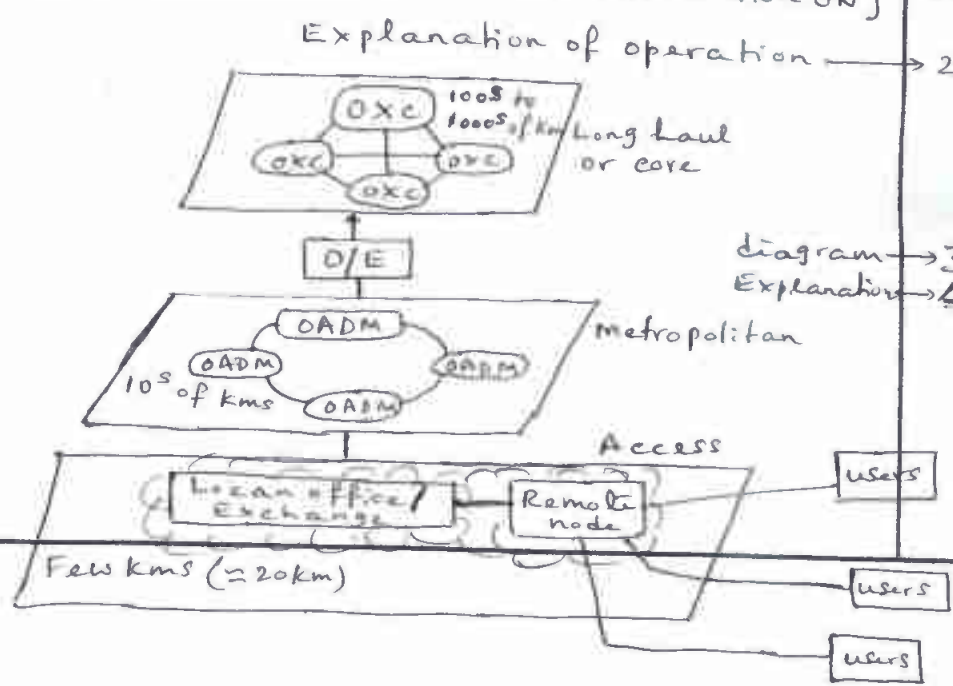 ON]
Explanation of operation → 2
OXC
100s to
1000s of km
Long haul
or core
OXC
OXC
OXC
O/E
diagram → 3
Explanation → 4
OADM
Metropolitan
OADM
OADM
10s of kms
OADM
Access
users
Local office/
Exchange
Remote
node
Few kms (≃20km)
users
users